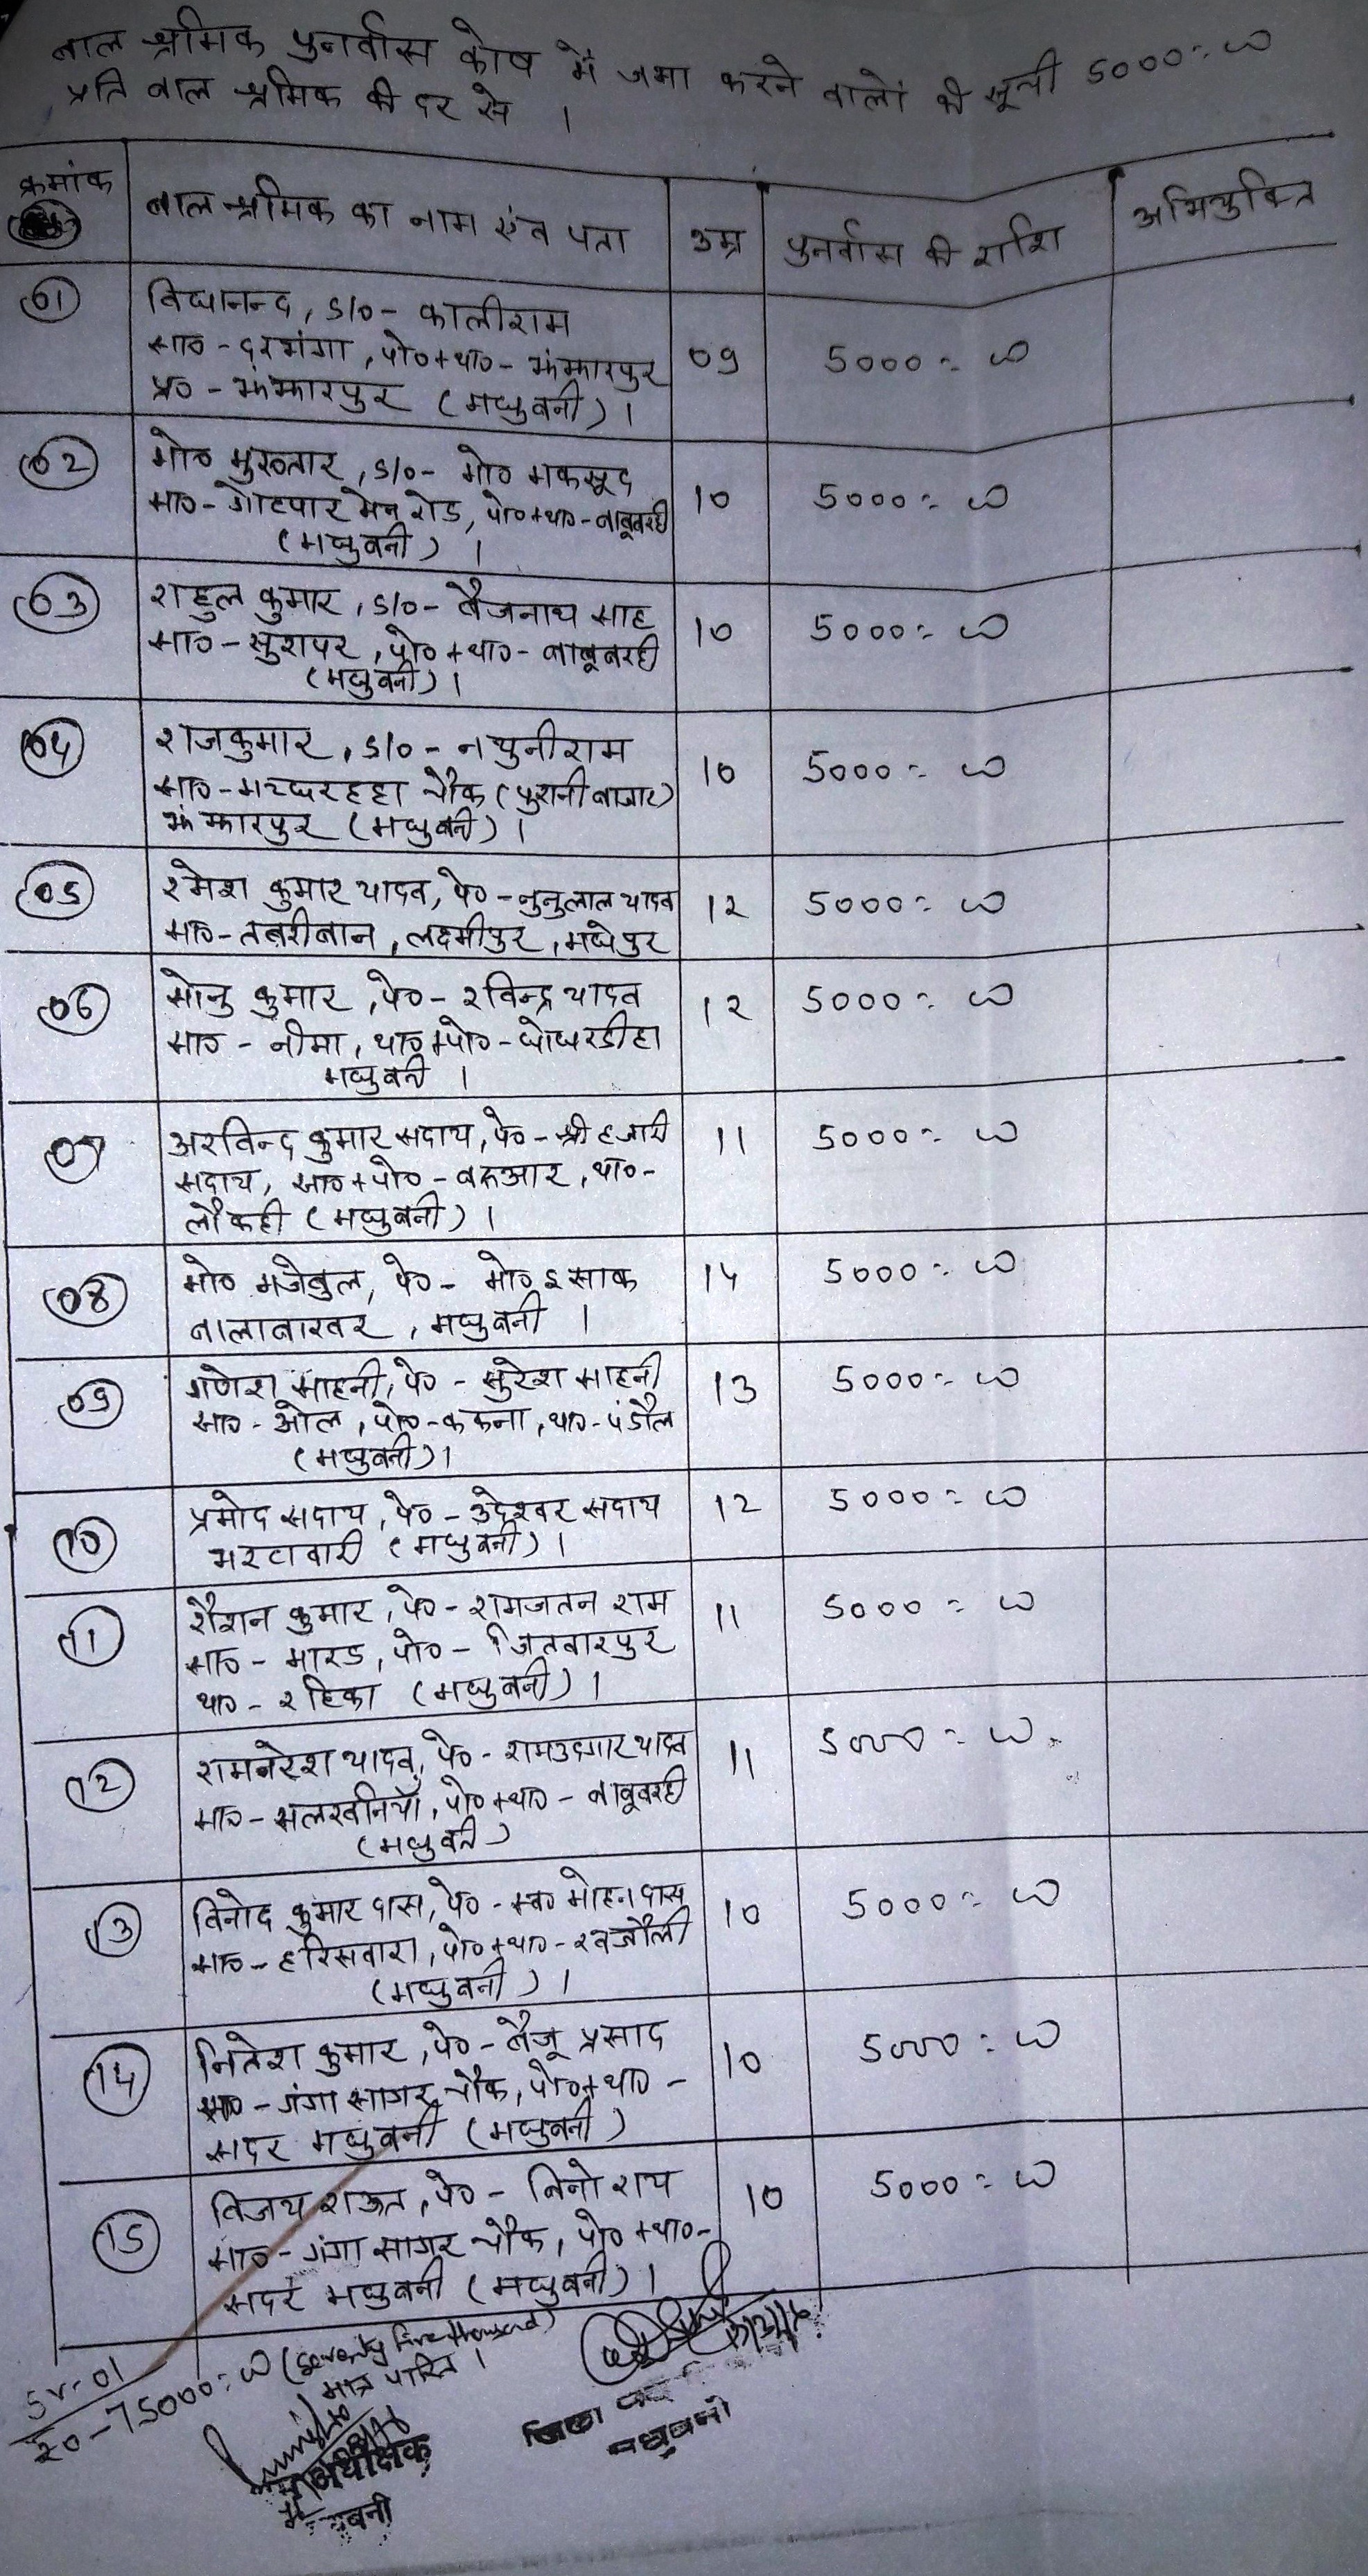 बाल श्रमिक पुनर्वास कोष में जमा करने वालों की सूची 5000=00
प्रति बाल श्रमिक की दर से ।
क्रमांक
बाल श्रमिक का नाम एंव पता
उम्र
पुनर्वास की राशि
अभियुक्ति
01
विद्यानन्द, S/o- कालीराम
सा०-दरभंगा, पो०+था०- झंझारपुर
प्र०-झंझारपुर (मधुबनी)।
09
5000=00
02
मो० मुख्तार, S/o- मो० मकसूद
सा०- मेन रोड, पो०+था०-बाबूबरही
(मधुबनी) ।
10
5000=00
03
राहुल कुमार, S/o- बैजनाथ साह
सा०-सुरापर, पो०+था०- बाबूबरही
(मधुबनी)।
10
5000=00
04
राजकुमार, S/o- नथुनीराम
सा०-मच्छरहट्टा चौक (पुरानी बाजार)
झंझारपुर (मधुबनी)।
10
5000=00
05
रमेश कुमार यादव, पे०-नुनुलाल यादव
सा०- लक्ष्मीपुर, मधेपुर
12
5000=00
06
सोनु कुमार, पे०-रविन्द्र यादव
सा०-नीमा, था०+पो०-घोघरडीहा
मधुबनी ।
12
5000=00
07
अरविन्द कुमार सदाय, पे०-श्री हजारी
सदाय, सा०+पो०-बरुआर, था०-
लौकही (मधुबनी)।
11
5000=00
08
मो० मजेबुल, पे०- मो० इसाक
मधुबनी ।
14
5000=00
09
गणेश साहनी, पे०-सुरेश साहनी
सा०-ओल, पो०-ककना, था०-पंडौल
(मधुबनी)।
13
5000=00
10
प्रमोद सदाय, पे०-उदेश्वर सदाय
(मधुबनी)।
12
5000=00
11
रौशन कुमार, पे०-रामजतन राम
सा०-मारड, पो०-जितवारपुर
था०-रहिका (मधुबनी)।
11
5000=00
12
रामनरेश यादव, पे०-रामउदगार यादव
सा०-सलखनियाँ, पो०+था०-बाबूबरही
(मधुबनी)
11
5000=00
13
विनोद कुमार दास, पे०-स्व० मोहन दास
सा०-हरिसवारा, पो०+था०-खजौली
(मधुबनी)।
10
5000=00
14
नितेश कुमार, पे०-बैजू प्रसाद
सा०-गंगा सागर चौक, पो०+था०-
सदर मधुबनी (मधुबनी)
10
5000=00
15
विजय राऊत, पे०- विनो राय
सा०-गंगा सागर चौक, पो०+था०-
सदर मधुबनी (मधुबनी)।
10
5000=00
रू०-75000=00 (Seventy Five thousand)
मात्र पारित ।
श्रम अधीक्षक
मधुबनी
जिला
मधुबनी